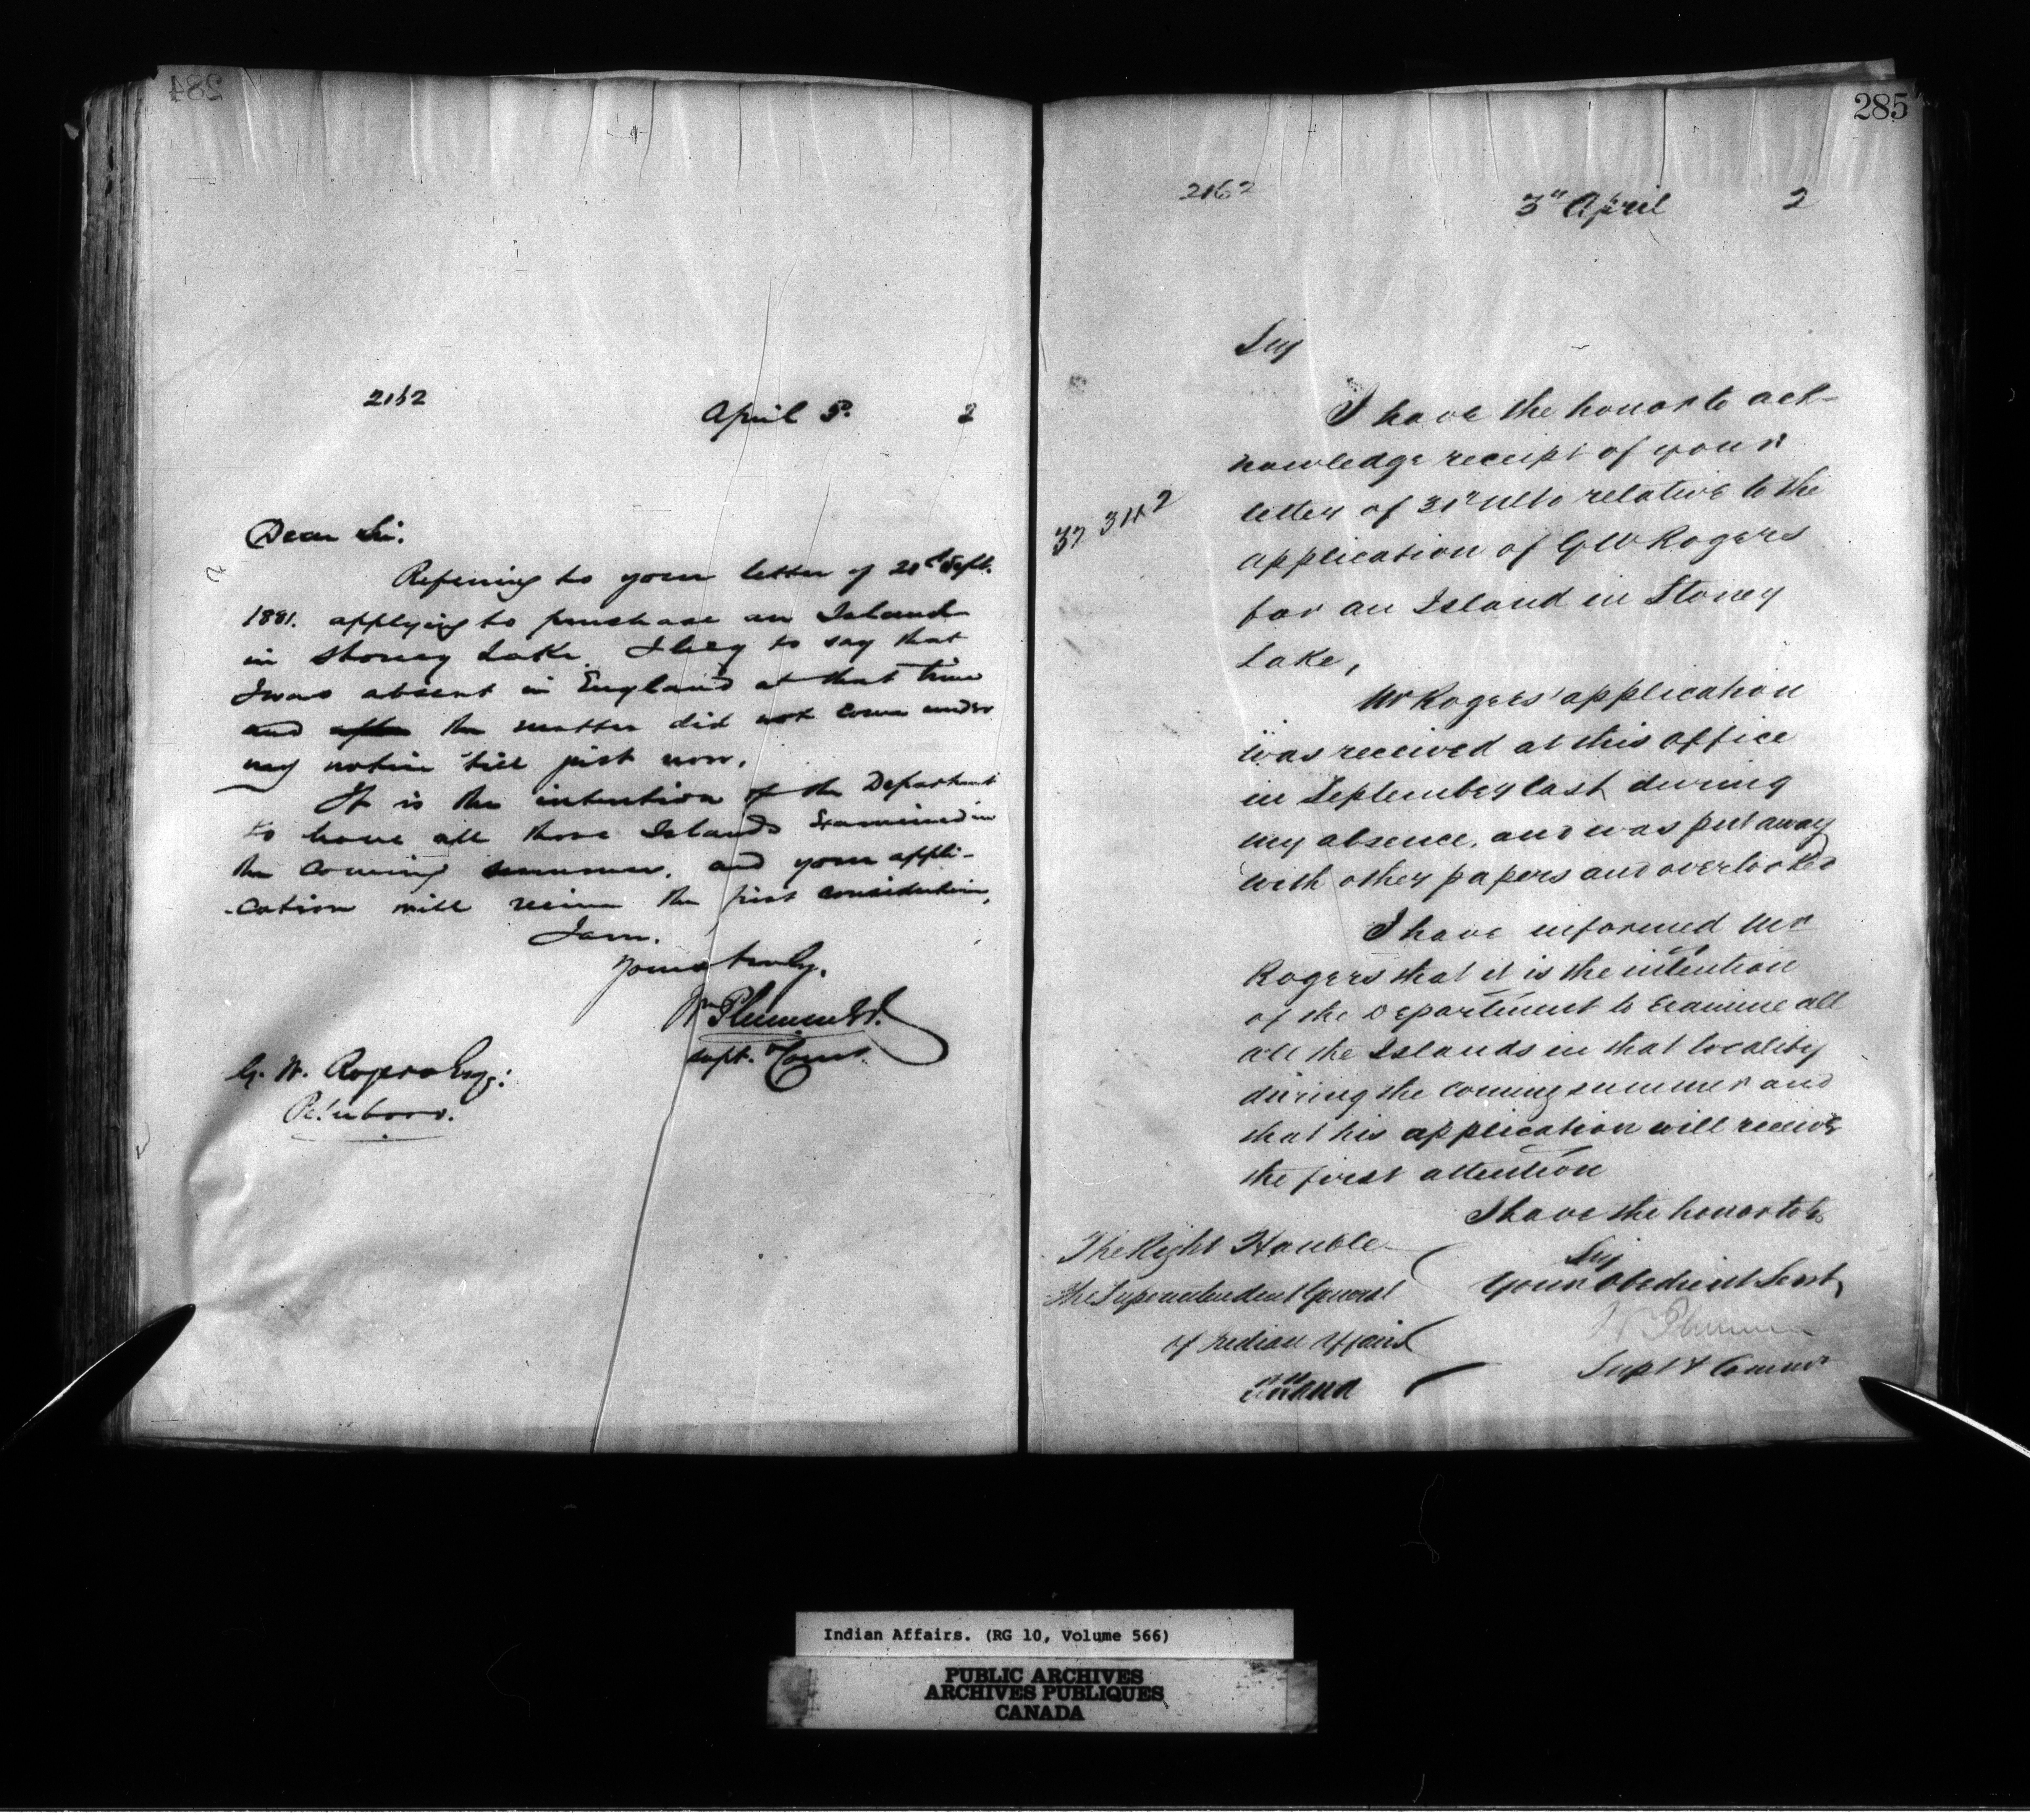 284
2162
April 5. 2
Dear Sir.
Refering to your letter of 28th Sept.
1881. applying to purchase an Island
in Stoney Lake. I beg to say that
I was absent in England at that time
and the matter did not come under
my notice till just now.
It is the intention of the Department
to have all those Islands Examined in
the Coming summer. and your appli-
-cation will receive the first consideration,
I am.
Yours truly,
Wm Plummer
Supt. & Comr.
G. W. Rogers Esq:
Peterboro.
285
2162
3rd April 2
Sir
I have the honor to ack-
nowledge receipt of your
37 3142
letter of 31st Ulto relative to the
application of G W Rogers
for an Island in Stoney
Lake,
Mr Rogers' application
was received at this office
in September last during
my absence, and was put away
with other papers and overlooked
I have informed Mr
Rogers that it is the intention
of the Department to Examine all
all the Islands in that locality
during the coming summer and
that his application will receive
the first attention
I have the honor to be
Sir
Your Obedient Servt,
W Plummer
Supt & Commr
The Right Honble
the Superintendent General
of Indian Affairs
Indian Affairs. (RG 10, Volume 566)
PUBLIC ARCHIVES
ARCHIVES PUBLIQUES
CANADA